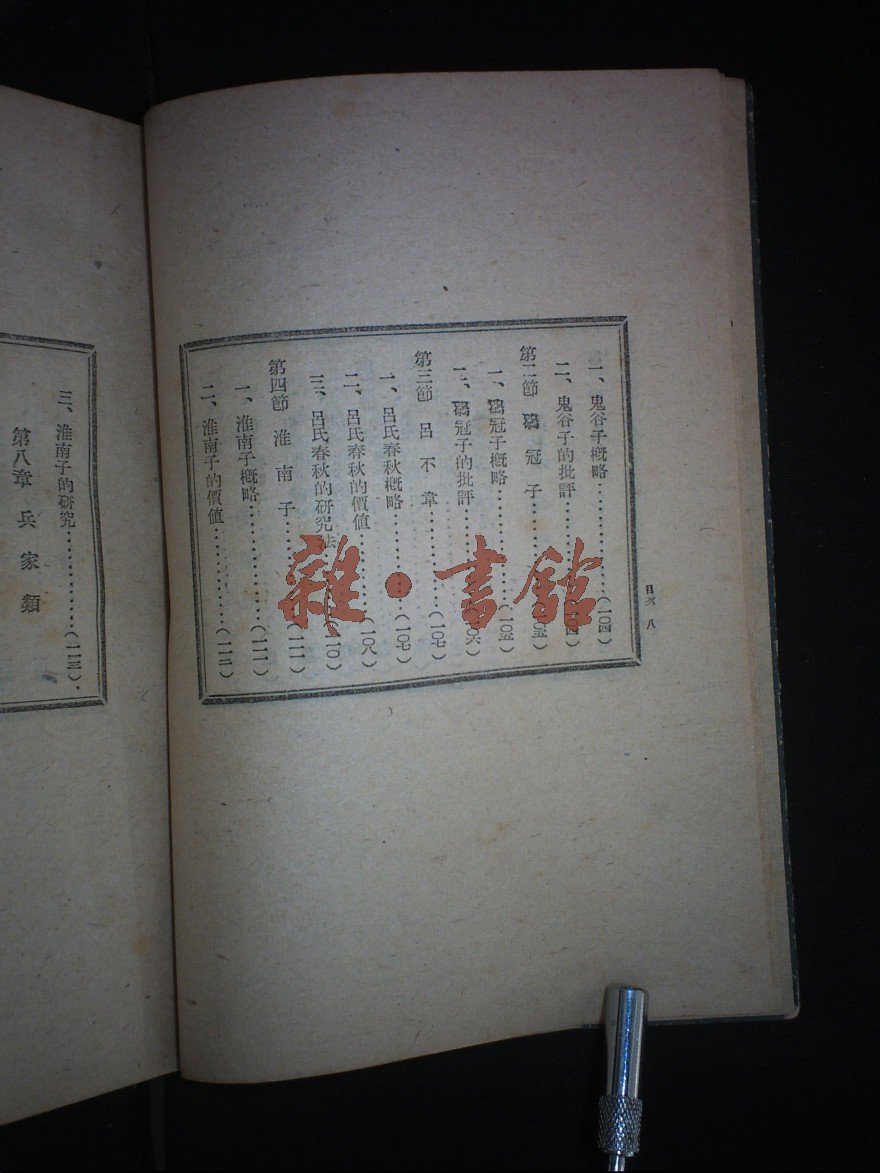 目次 八
一、鬼谷子概略…………(一〇四)
二、鬼谷子的批評…………(一〇四)
第二節 鶡冠子…………(一〇五)
一、鶡冠子概略…………(一〇五)
二、鶡冠子的批評…………(一〇六)
第三節 呂不韋…………(一〇七)
一、呂氏春秋概略…………(一〇七)
二、呂氏春秋的價値…………(一〇八)
三、呂氏春秋的研究法…………(一一〇)
第四節 淮南子…………(一一一)
一、淮南子概略…………(一一一)
二、淮南子的價値…………(一一二)
三、淮南子的研究…………(一一三)
第八章 兵家類
雜·書館